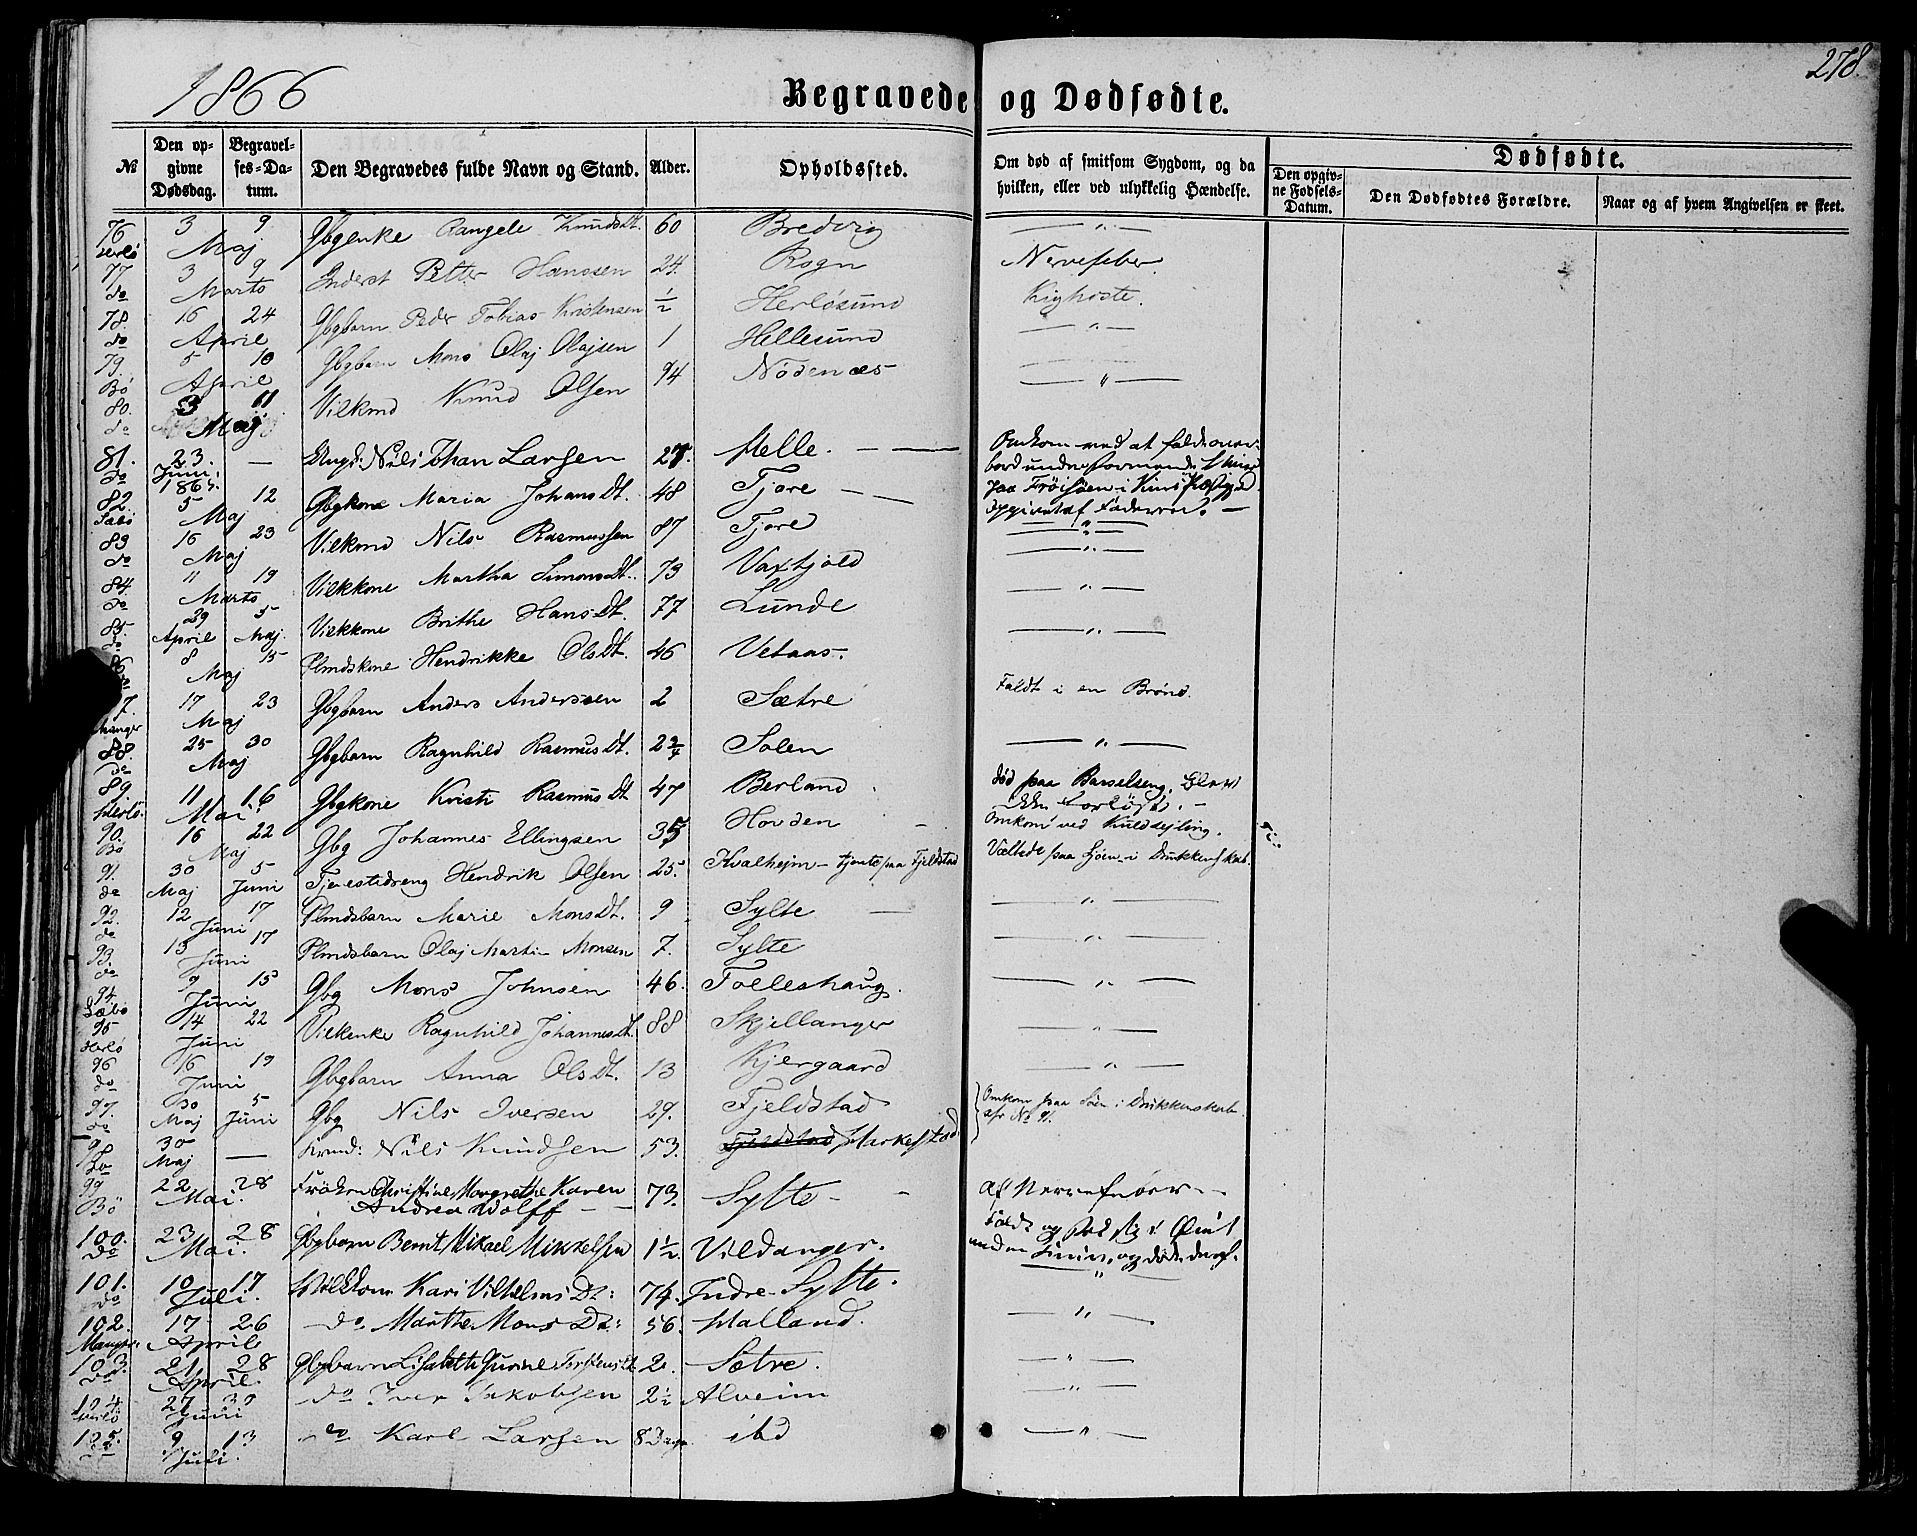 1866
Begravede og Dødfødte.
278.
№ Den opgivne Dødsdag. Begravelses-Datum. Den Begravedes fulde Navn og Stand. Alder. Opholdssted. Om død af smitsom Sygdom, og da hvilken, eller ved ulykkelig Hændelse. Dødfødte. Den opgivne Fødsels-Datum. Den Dødfødtes Forældre. Naar og af hvem Angivelsen er skeet.
76 Herlø 3 9 Maj Gbgenke Rangele Knudsdt. 60 Bredvig — " —
77 do 3 9 Marts Inderst Petter Hanssen 24. Rogn Nervefeber.
78. do 16 24 April Gbgbarn Peder Tobias Kristensen ½ Herløsund Kighoste.
79. Bø 5 10 April Gbgbarn Mons Olaj Olajsen 1 Hellesund — " —
80. do 3 11 Maj Vilkmd Knud Olsen 94 Nodenæs — " —
81. do 23. Juni 1865. — Ungk: Nils Johan Larsen 27. Helle. — Omkom ved at falde overbord under paa Frøisøen i Kins opgivet af Faderen. —
82. Sæbø 5 12 Maj Gbgkone Maria Johansdt. 48 Tjore — — — " —
83 do 16 23 Maj Vilkmd Nils Rasmussen 87 Tjore — " —
84. do 11 19 Marts Vilkkone Martha Simonsdt. 73 Vaxtjold — " —
85. do 29 April 5 Maj. Vilkkone Brithe Hansdt. 77 Lunde — " —
8 15 Maj Plmdskone Hendrikke Olsdt. 46 Vetaas.
7. 17 23 Maj Gbgbarn Anders Anderssen 2 Sætre Faldt i en Brønd.
88. do 25 30 Maj Gbgbarn Ragnhild Rasmusdt. 2¾ Solen — " —
89 Herlø. 11 16 Mai. Gbgkone Kristi Rasmusdt 47 Berland død paa Barselseng, blev ikke Forløst. —
90. Bø 16 22 Maj Gbg Johannes Ellingsen 35 Hovden — Omkom ved Kuldsejling.
91. do 30 Maj 5 Juni Tjenestedreng Hendrik Olsen 25. Kvalheim — tjente paa Fjeldstad Væltede paa Sjøen i Drukkenskab.
92. do 12 17 Juni Plmdsbarn Marie Monsdt. 9 Sylte — — " —
93. do 13 17 Juni Plmdsbarn Olaj Martin Monsen 7. Sylte — " —
94. Sæbø 9 15 Juni Gbg Mons Johnsen 46. Tolleshaug. — " —
95 Herlø 14 22 Juni Vilkenke Ragnhild Johannesdt. 88 Skjellanger — " —
96 do 16 19 Juni Gbgbarn Anna Olsdt. 13 Kjergaard — " —
97. do 30 Maj 5 Juni Gbg Nils Iversen 29. Fjeldstad Omkom paa Søen i Drukkenskab. cfr No 91.
98 do 30 Maj — Nils Knudsen 53. Fjeldstad Markestad
99 Bø 22 28 Mai. Frøken Christine Margrethe Karen Andrea Wolff — — 73. Sylte — — Af Nervefeber —
100. do 23 28 Mai. Gbgbarn Bernt Mikael Mikkelsen 1½. Vildanger. Faldt og
101. do 10 17 Juli. Vilkkone Kari Vilhelms Dt: 74. Indre-Sylte. — " —
102. 17 26 April do Marthe Mons Dt: 56. Halland. — " —
103. do 21 28 April. Gbgbarn Lisabeth Gurine Torstensdt 2. Sætre. — " —
104 Herlø 27 30 Juni do Iver Jakobsen 2½ Alveim — " —
105. do 9 13 Juli. do Karl Larsen 8 Dage ibd — " —